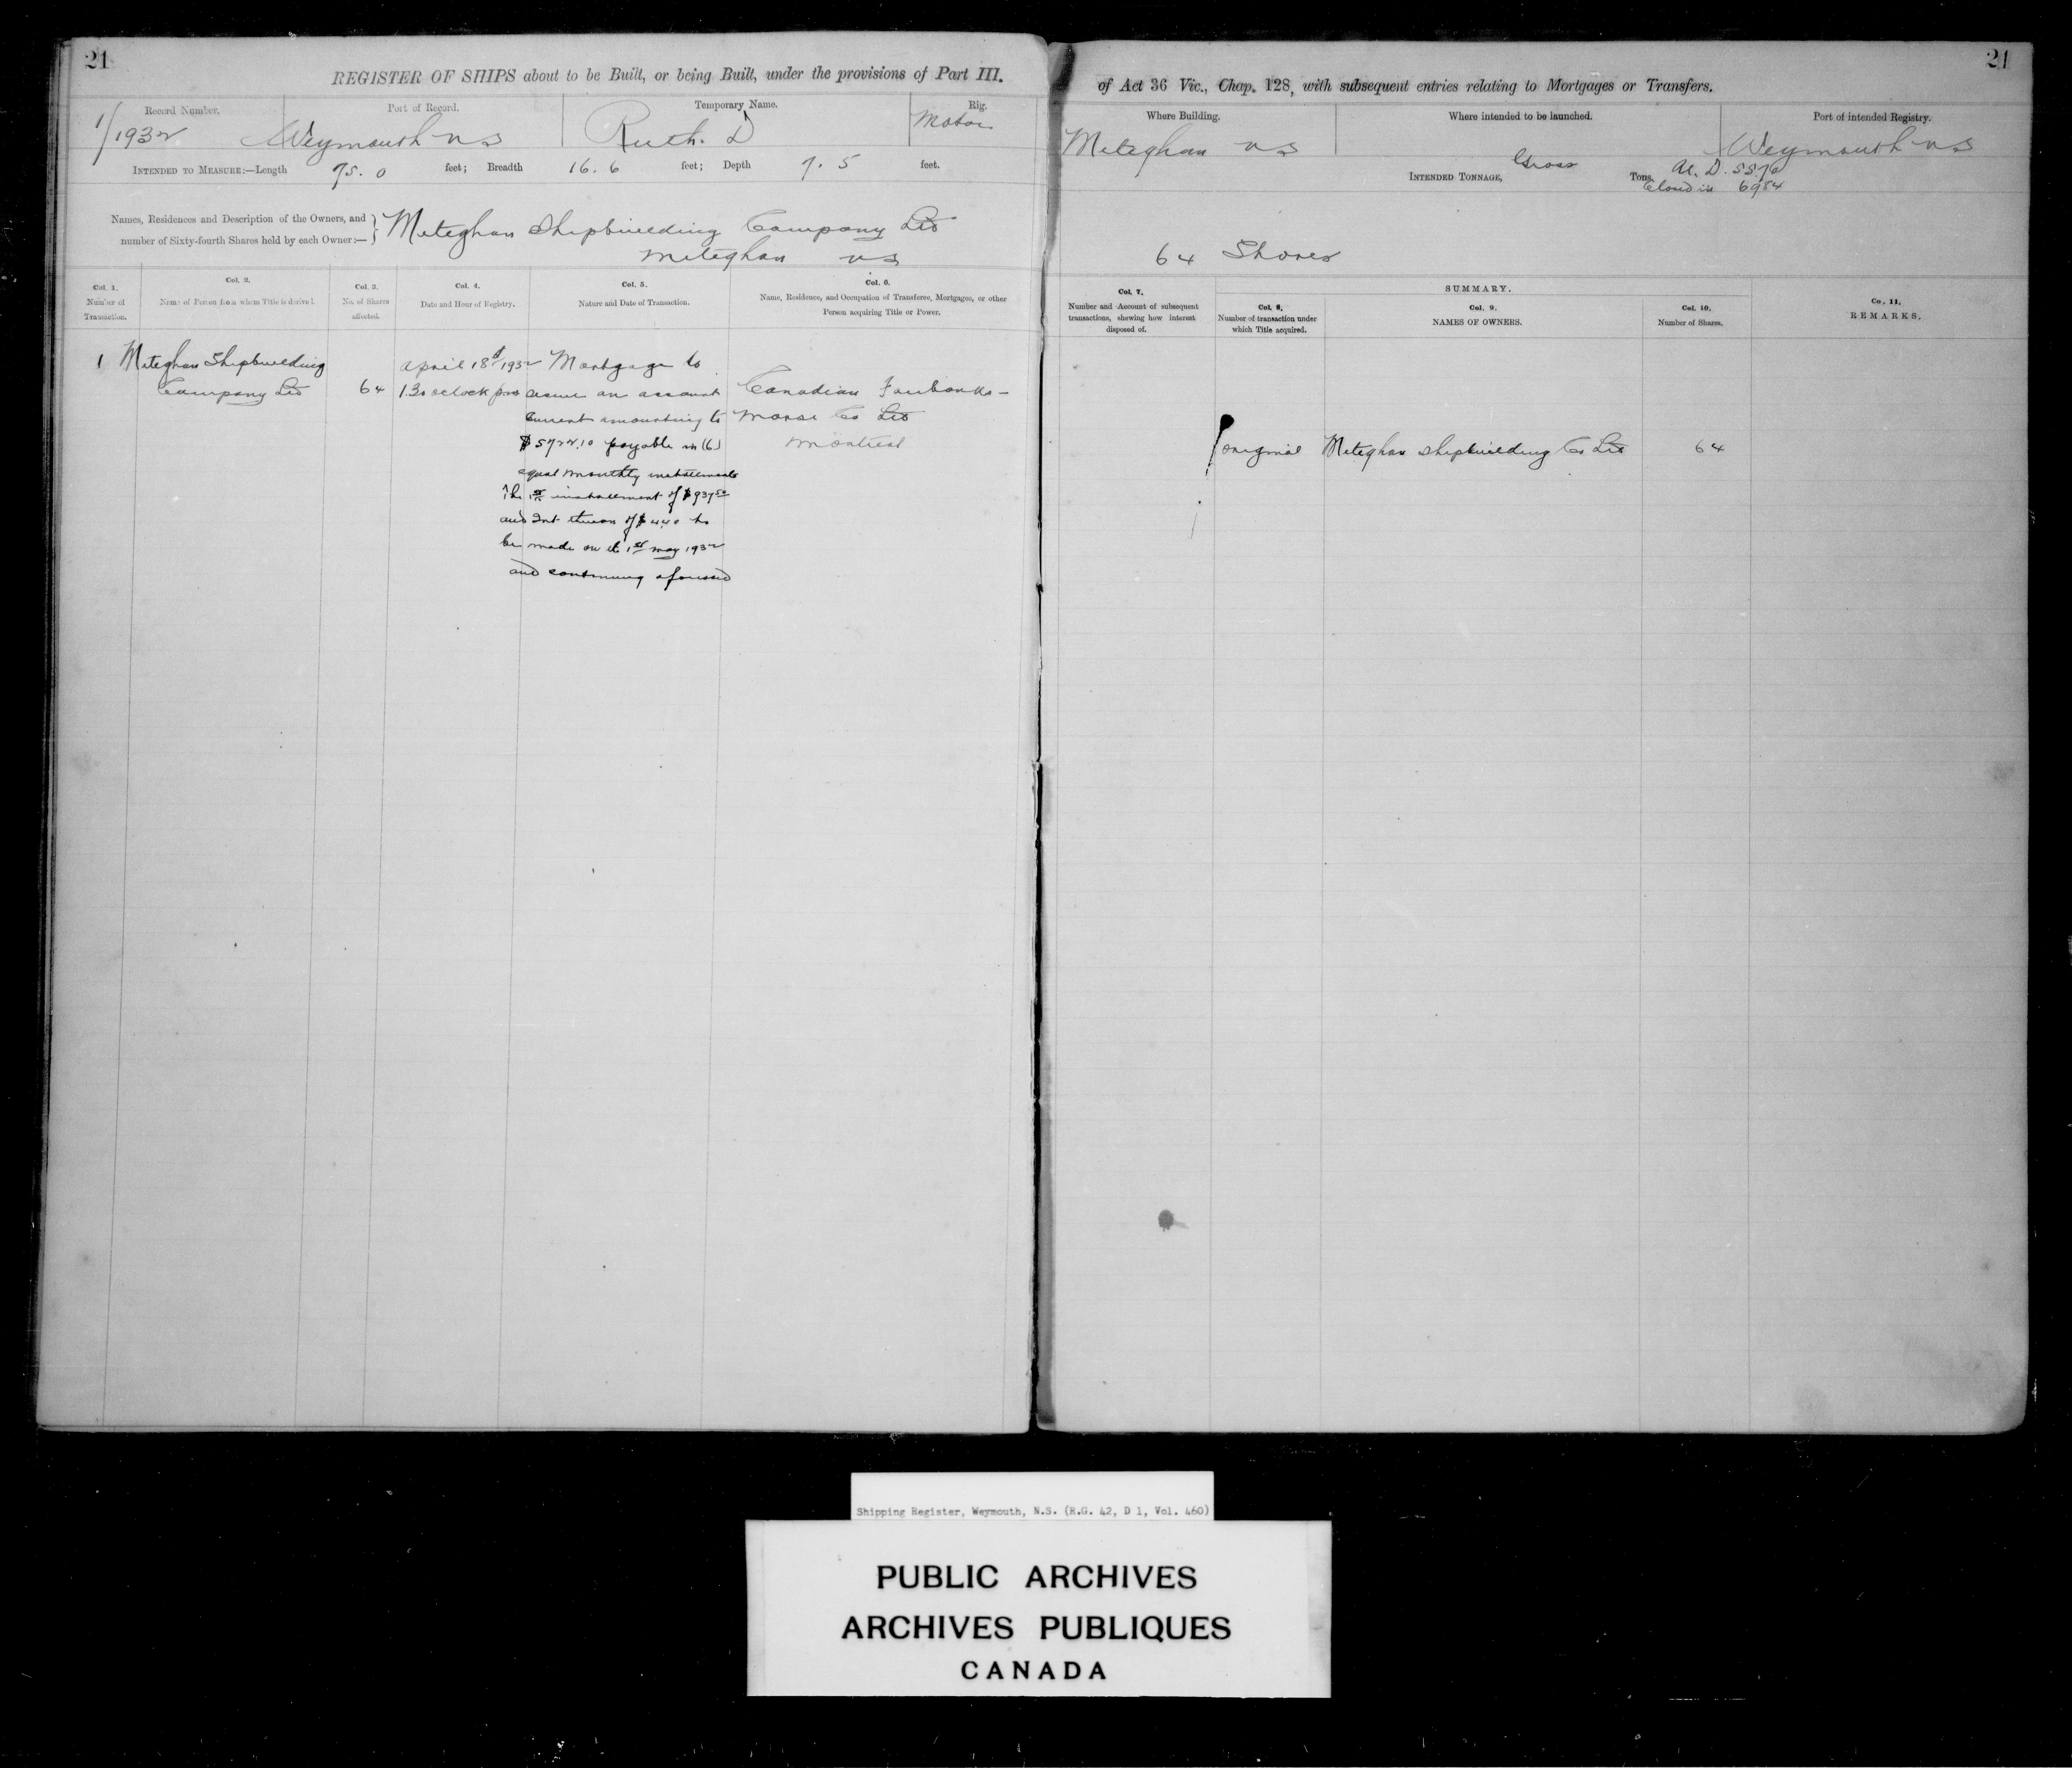 21
REGISTER OF SHIPS about to be Built, or being Built, under the provisions of Part III.
Record Number.
1/1932
Port of Record.
Weymouth NS
Temporary Name.
Ruth. D
Rig.
Motor
INTENDED TO MEASURE:—Length 75.0 feet; Breadth 16.6 feet; Depth 7.5 feet.
Names, Residences and Description of the Owners, and
number of Sixty-fourth Shares held by each Owner:—
Meteghan Shipbuilding Company Ltd
Meteghan NS
Col. 1.
Number of
Transaction.
Col. 2.
Name of Person from whom Title is derived.
Col. 3.
No. of Shares
affected.
Col. 4.
Date and Hour of Registry.
Col. 5.
Nature and Date of Transaction.
Col. 6.
Name, Residence, and Occupation of Transferee, Mortgagee, or other
Person acquiring Title or Power.
1
Meteghan Shipbuilding
Company Ltd
64
April 18 1932
1.30 oclock pm
Mortgage to
secure an account
current amounting to
$5722.10 payable in (6)
equal monthly installments
The 1st installment of $937.50
and Int thereon of $44.0 to
be made on the 1st May 1932
and continuing aforesaid
Canadian Fairbanks-
Morse Co Ltd
Montreal
21
of Act 36 Vic., Chap. 128, with subsequent entries relating to Mortgages or Transfers.
Where Building.
Meteghan NS
Where intended to be launched.
Port of intended Registry.
Weymouth NS
INTENDED TONNAGE, Gross Tons.
M. D. 5576
Closed in 6984
64 Shares
Col. 7.
Number and Account of subsequent
transactions, shewing how interest
disposed of.
SUMMARY.
Col. 8.
Number of transaction under
which Title acquired.
Col. 9.
NAMES OF OWNERS.
Col. 10.
Number of Shares.
Co. 11.
REMARKS.
original Meteghan Shipbuilding Co Ltd 64
Shipping Register, Weymouth, N.S. (R.G. 42, D 1, Vol. 460)
PUBLIC ARCHIVES
ARCHIVES PUBLIQUES
CANADA